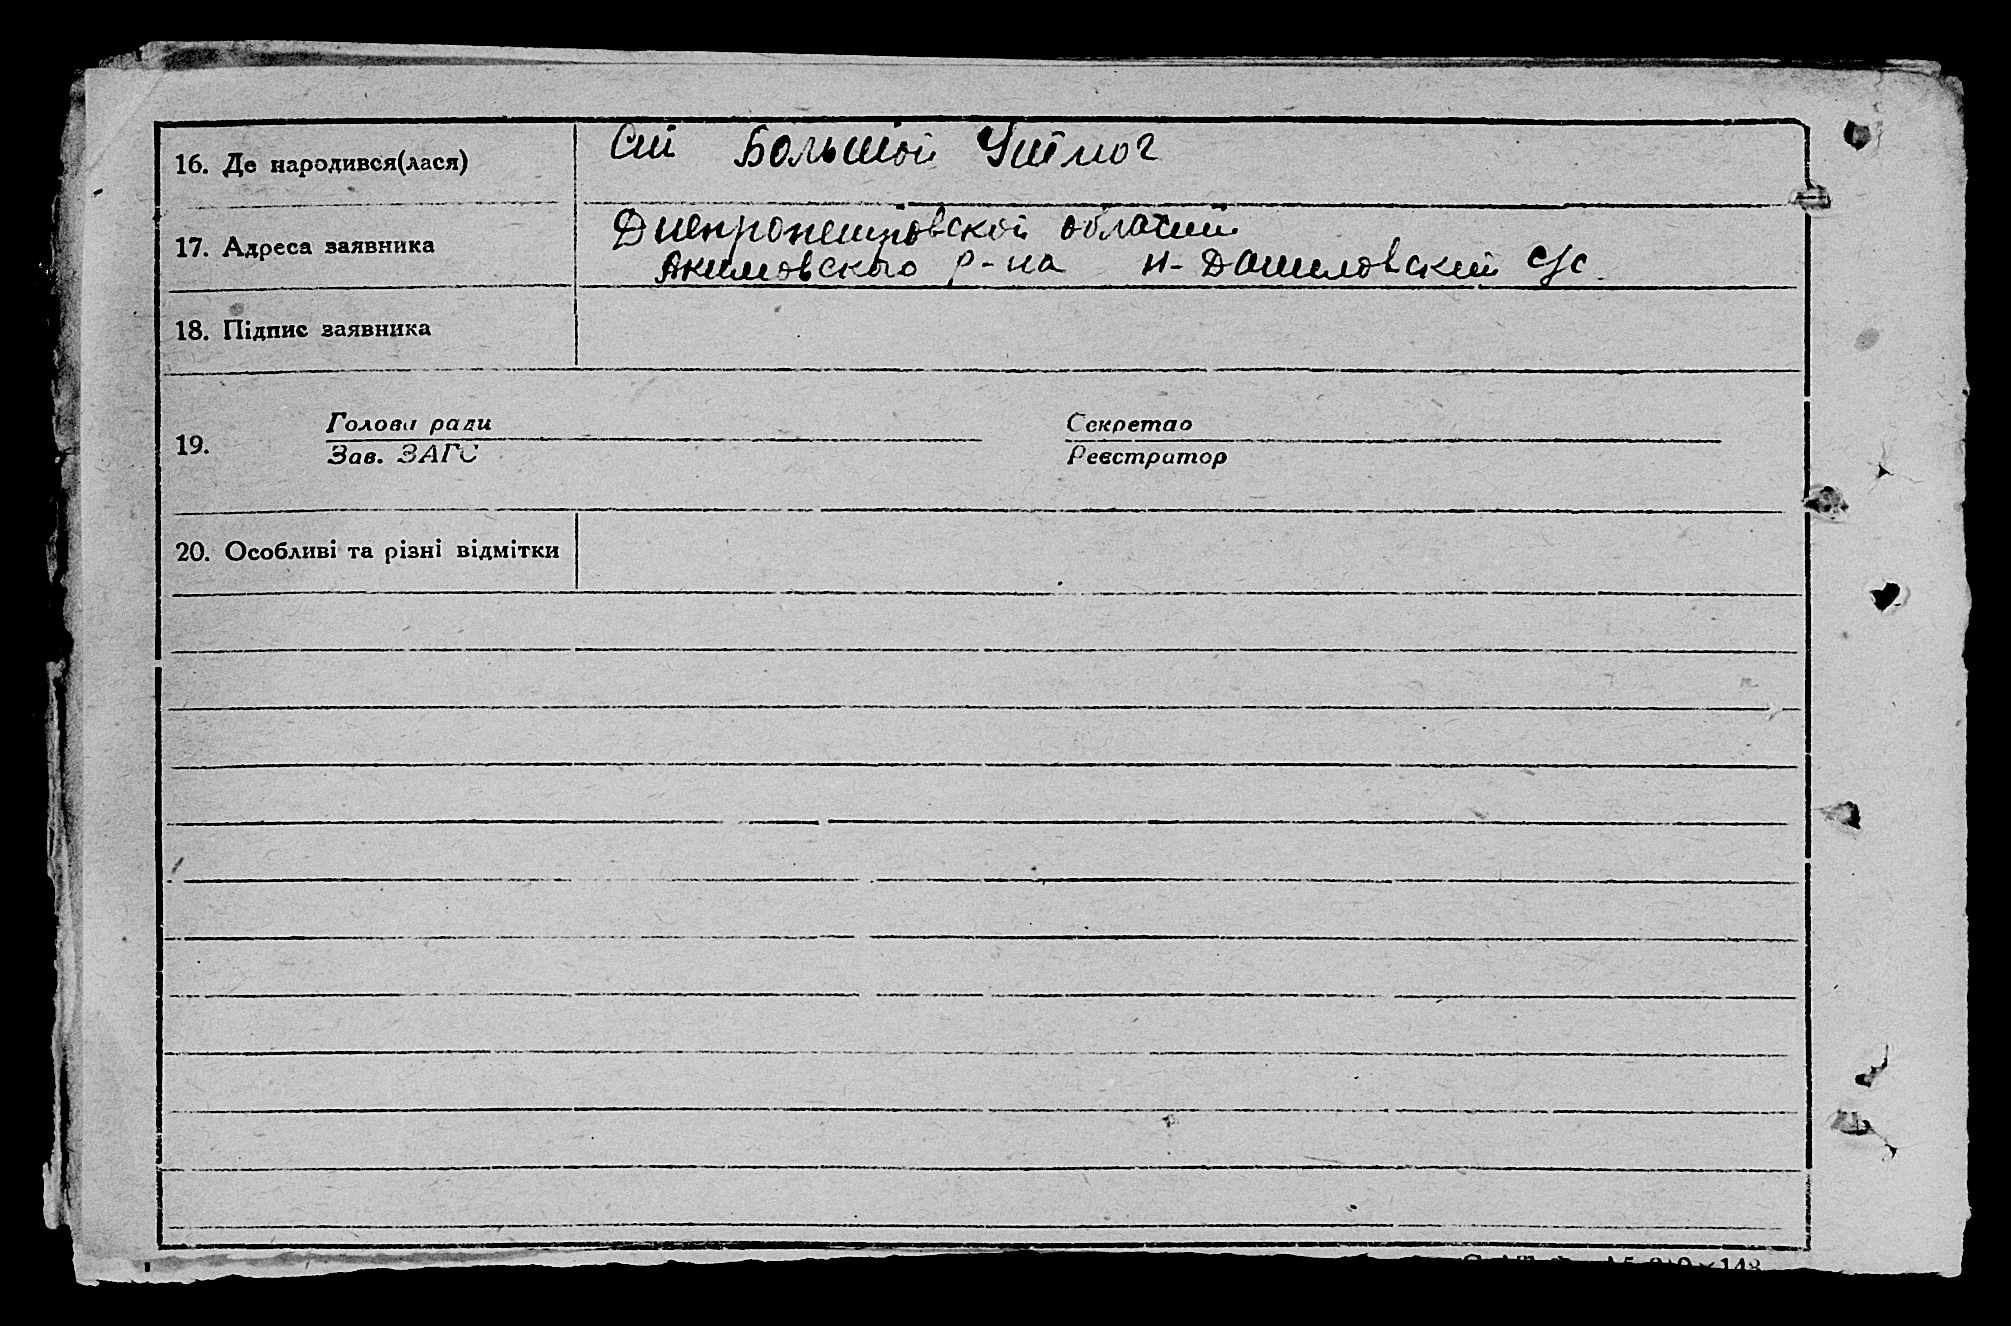 16. Де народився(лася)
Большой Утлюг
17. Адреса заявника
Днепропетровской области
Акимовского р-на Н-Даниловский с/с.
18. Підпис заявника
19.
Голова ради
Зав. ЗАГС
Секретар
Реєстратор
20. Особливі та різні відмітки